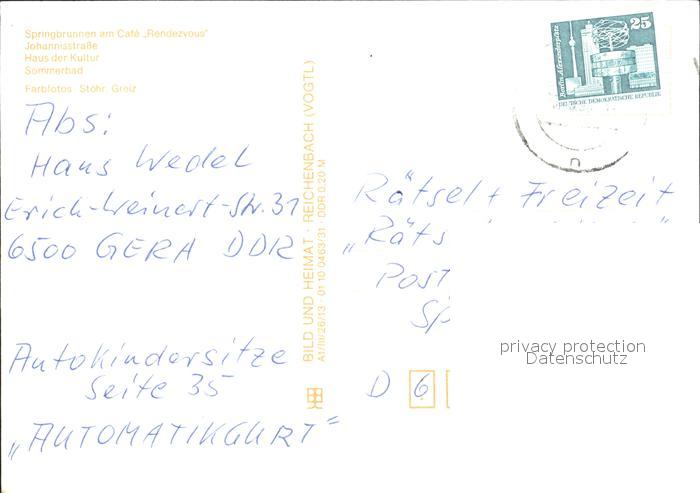 Springbrunnen am Café „Rendezvous"
Johannisstraße
Haus der Kultur
Sommerbad
Farbfotos: Stöhr, Greiz
Abs:
Hans Wedel
Erich-Weinert-Str. 31
6500 GERA DDR
Autokindersitze
Seite 35
„AUTOMATIKGURT"
BILD UND HEIMAT · REICHENBACH (VOGTL)
A1/III/26/13 · 01 10 0463/31 · DDR 0,20 M
25
Berlin, Alexanderplatz
DEUTSCHE DEMOKRATISCHE REPUBLIK
Rätsel + Freizeit
„Räts
Post
Sp
D 6
privacy protection
Datenschutz